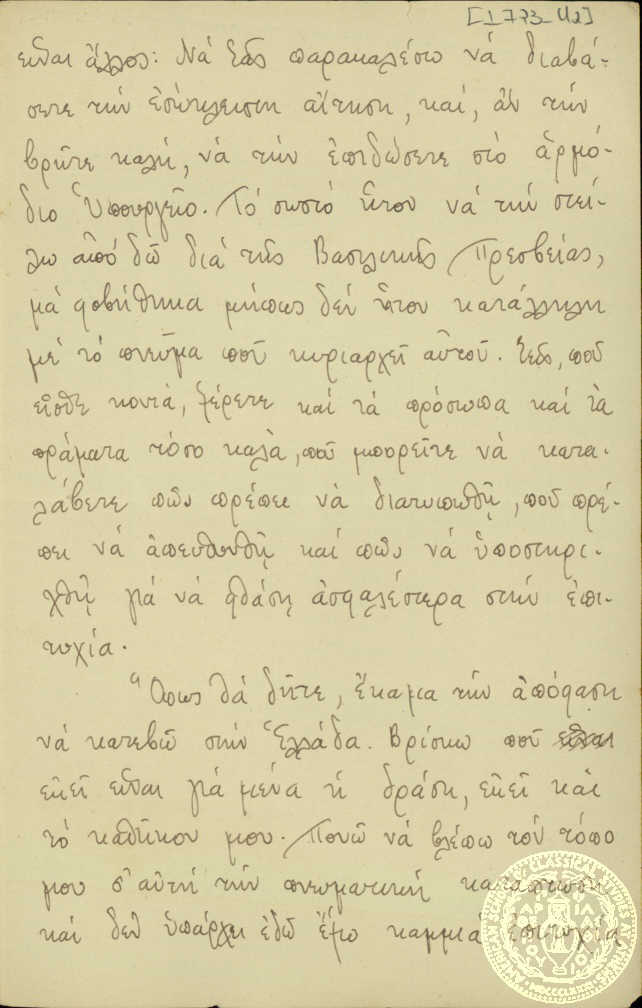 [1773_42]
εἶναι ἄλλος: Νά Σᾶς παρακαλέσω νά διαβά-
σετε τήν ἐσώκλειστη αἴτηση, καί, ἄν τήν
βρῆτε καλή, νά τήν ἐπιδώσετε στό ἁρμό-
διο Ὑπουργεῖο. Τό σωστό ἦτον νά τήν στεί-
λω ἀπό δῶ διά τῆς Βασιλικῆς Πρεσβείας,
μά φοβήθηκα μήπως δέν ἦτον κατάλληλη
μέ τό πνεῦμα ποῦ κυριαρχεῖ αὐτοῦ. Σεῖς, ποῦ
εἶσθε κοντά, ξέρετε καί τά πρόσωπα καί τά
πράματα τόσο καλά, ποῦ μπορεῖτε νά κατα-
λάβετε πῶς πρέπει νά διατυπωθῇ, ποῦ πρέ-
πει νά ἀπευθυνθῇ καί πῶς νά ὑποστηρι-
χθῇ γιά νά φθάσῃ ἀσφαλέστερα στήν ἐπι-
τυχία.
Ὅπως θά δῆτε, ἔκαμα τήν ἀπόφαση
νά κατεβῶ στήν Ἑλλάδα. Βρίσκω ποῦ
ἐκεῖ εἶναι γιά μένα ἡ δράση, ἐκεῖ καί
τό καθῆκον μου. Πονῶ νά βλέπω τόν τόπο
μου σ' αὐτή τήν πνευματική κατάπτωση
καί δέν ὑπάρχει ἐδῶ ἔξω καμμιά ἐπιτυχία